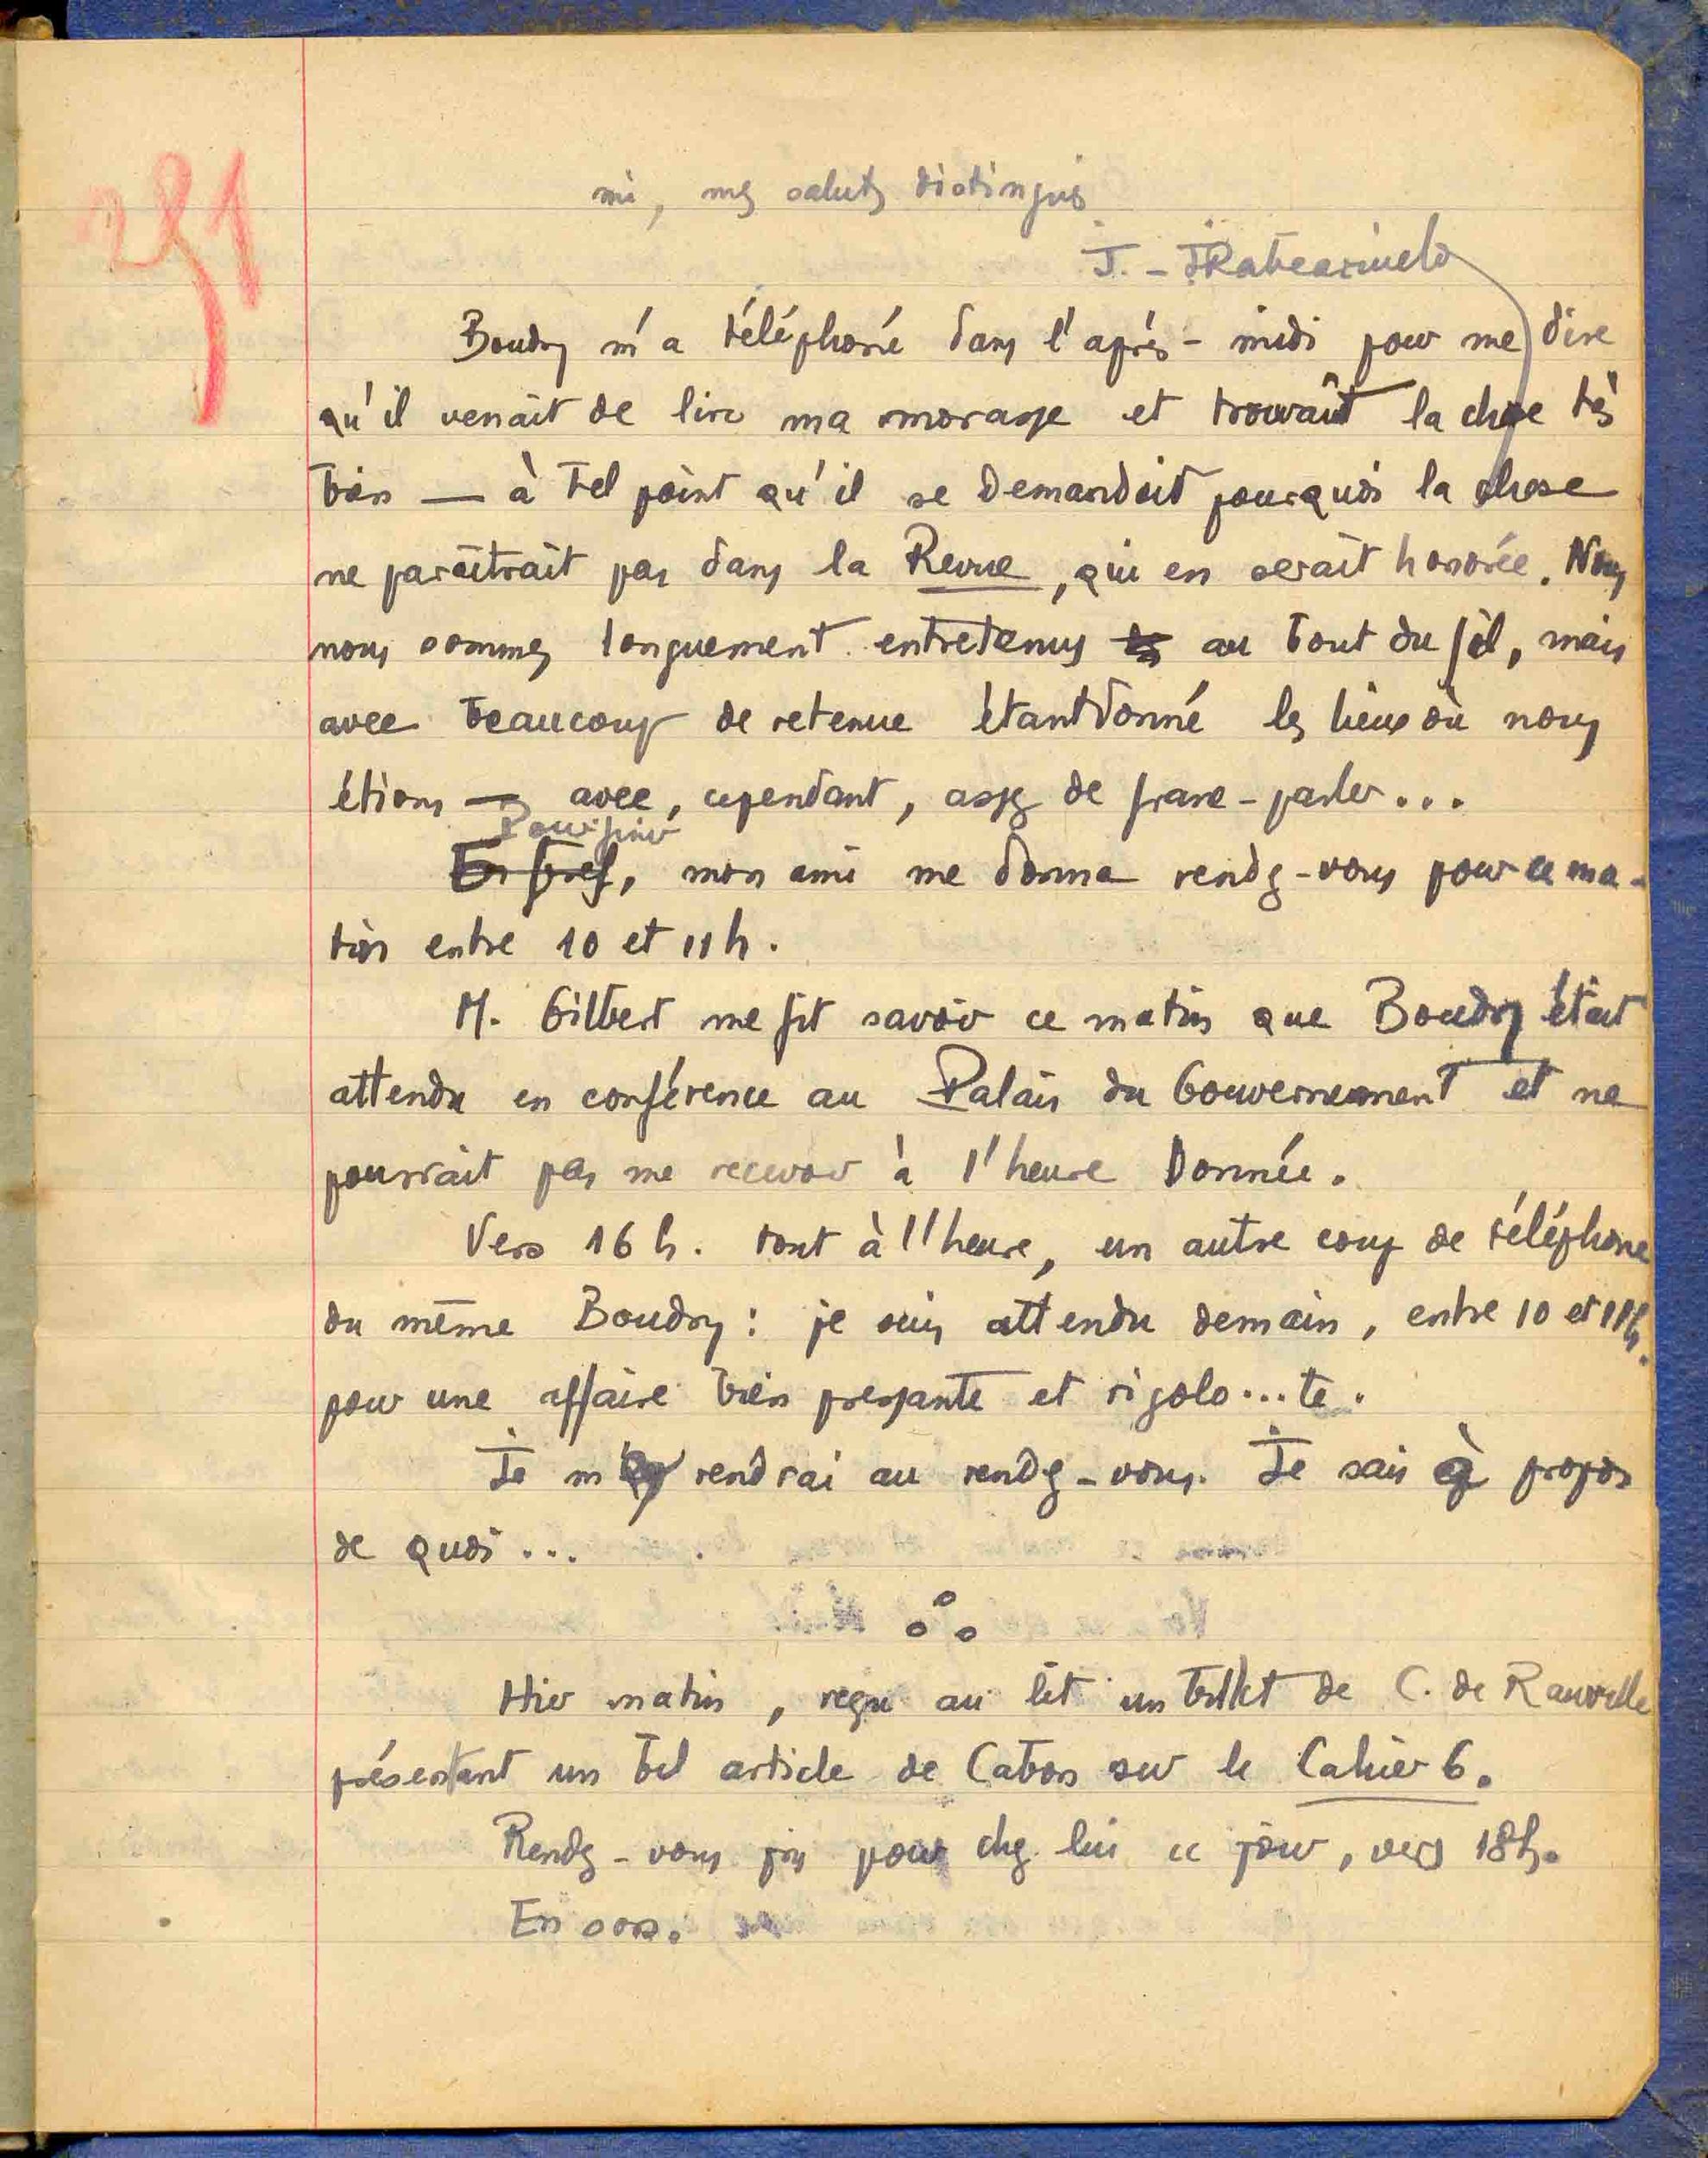 251
mi, mes saluts distingués
J.-J. Rabearivelo
Boudry m'a téléphoné dans l'après-midi pour me dire
qu'il venait de lire ma morasse et trouvait la chose très
bien — à tel point qu'il se demandait pourquoi la chose
ne paraîtrait pas dans la Revue, qui en serait honorée. Nous
nous sommes longuement entretenus au bout du fil, mais
avec beaucoup de retenue étant donné les lieux où nous
étions — avec, cependant, assez de franc-parler...
Pour finir
En bref, mon ami me donna rendez-vous pour ce ma-
tin entre 10 et 11 h.
M. Gilbert me fit savoir ce matin que Boudry était
attendu en conférence au Palais du Gouvernement et ne
pourrait pas me recevoir à l'heure donnée.
Vers 16 h. tout à l'heure, un autre coup de téléphone
du même Boudry : je suis attendu demain, entre 10 et 11 h.
pour une affaire très pressante et rigolo...te.
Je m rendrai au rendez-vous. Je sais à propos
de quoi...
Hier matin, reçu au lit un billet de C. de Rauville
présentant un bel article de Caban sur le Cahier 6.
Rendez-vous pris pour chez lui ce jour, vers 18 h.
En sors.